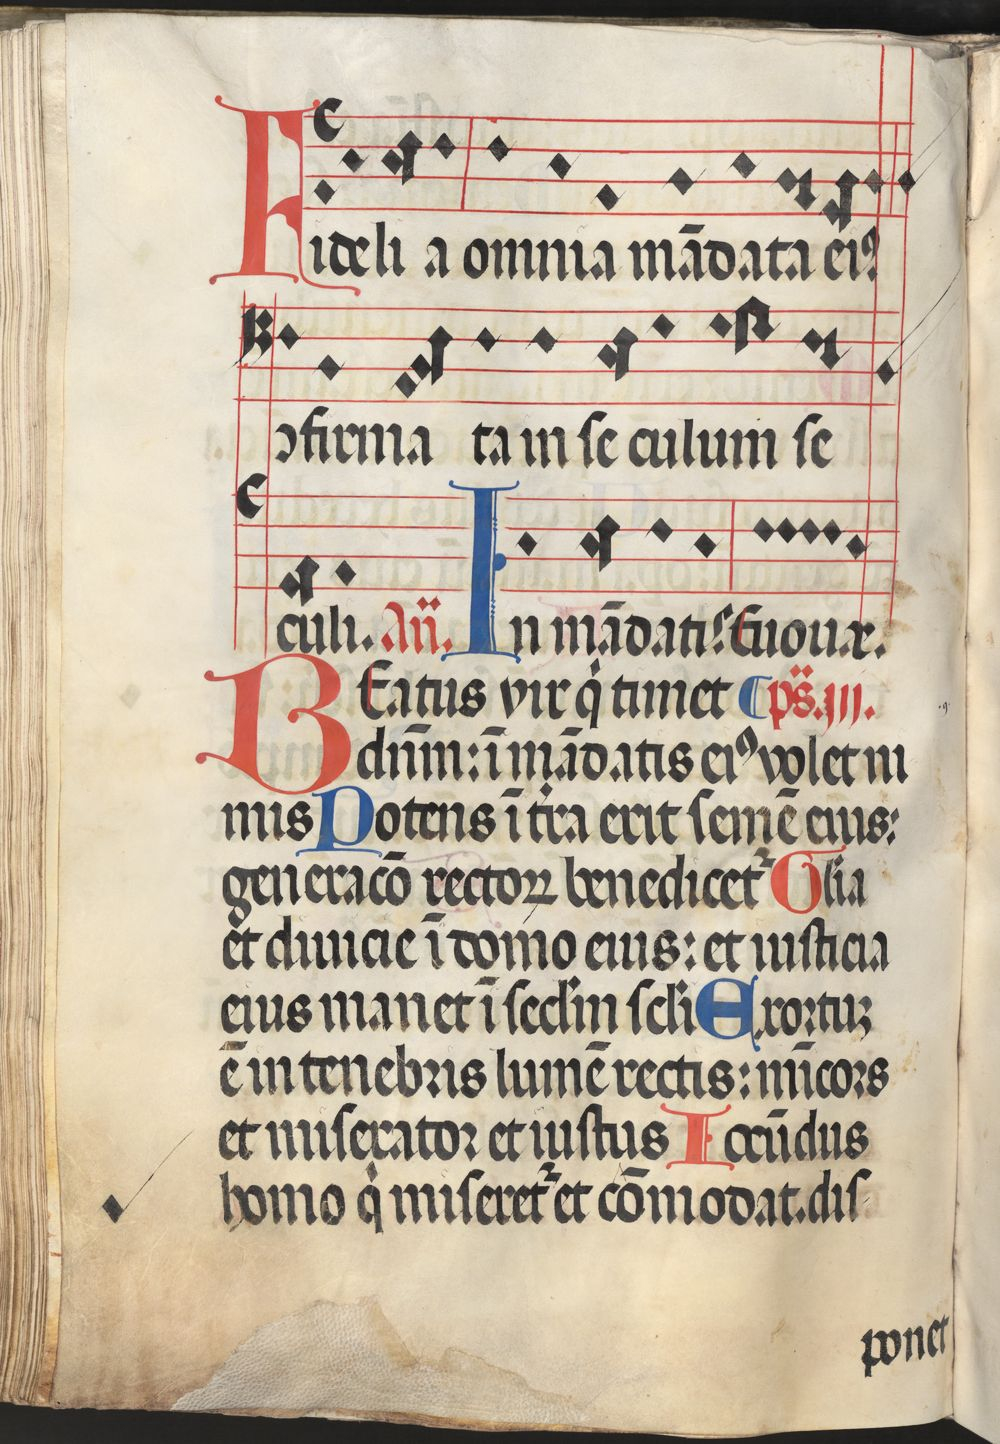 Fideli a omnia mādata eiꝰ
ↄfirma ta in se culum se
culi. Añ. In mādatis Euouae.
BEatus vir q̇ timet ps̄. iij.
dn̄m: ī mādatis eiꝰ volet ni
mis Potens ī tr̄a erit semē eius:
generacō rectoꝝ benedicet᷑ Glia
et diuicie ī domo eius: et iusticia
eius manet ī secl̄m scl̄i Exortuȝ
ē in tenebris lumē rectis: mīcors
et miserator et iustus Iocūdus
homo q̇ miseret᷑ et cōmodat. dis
ponet